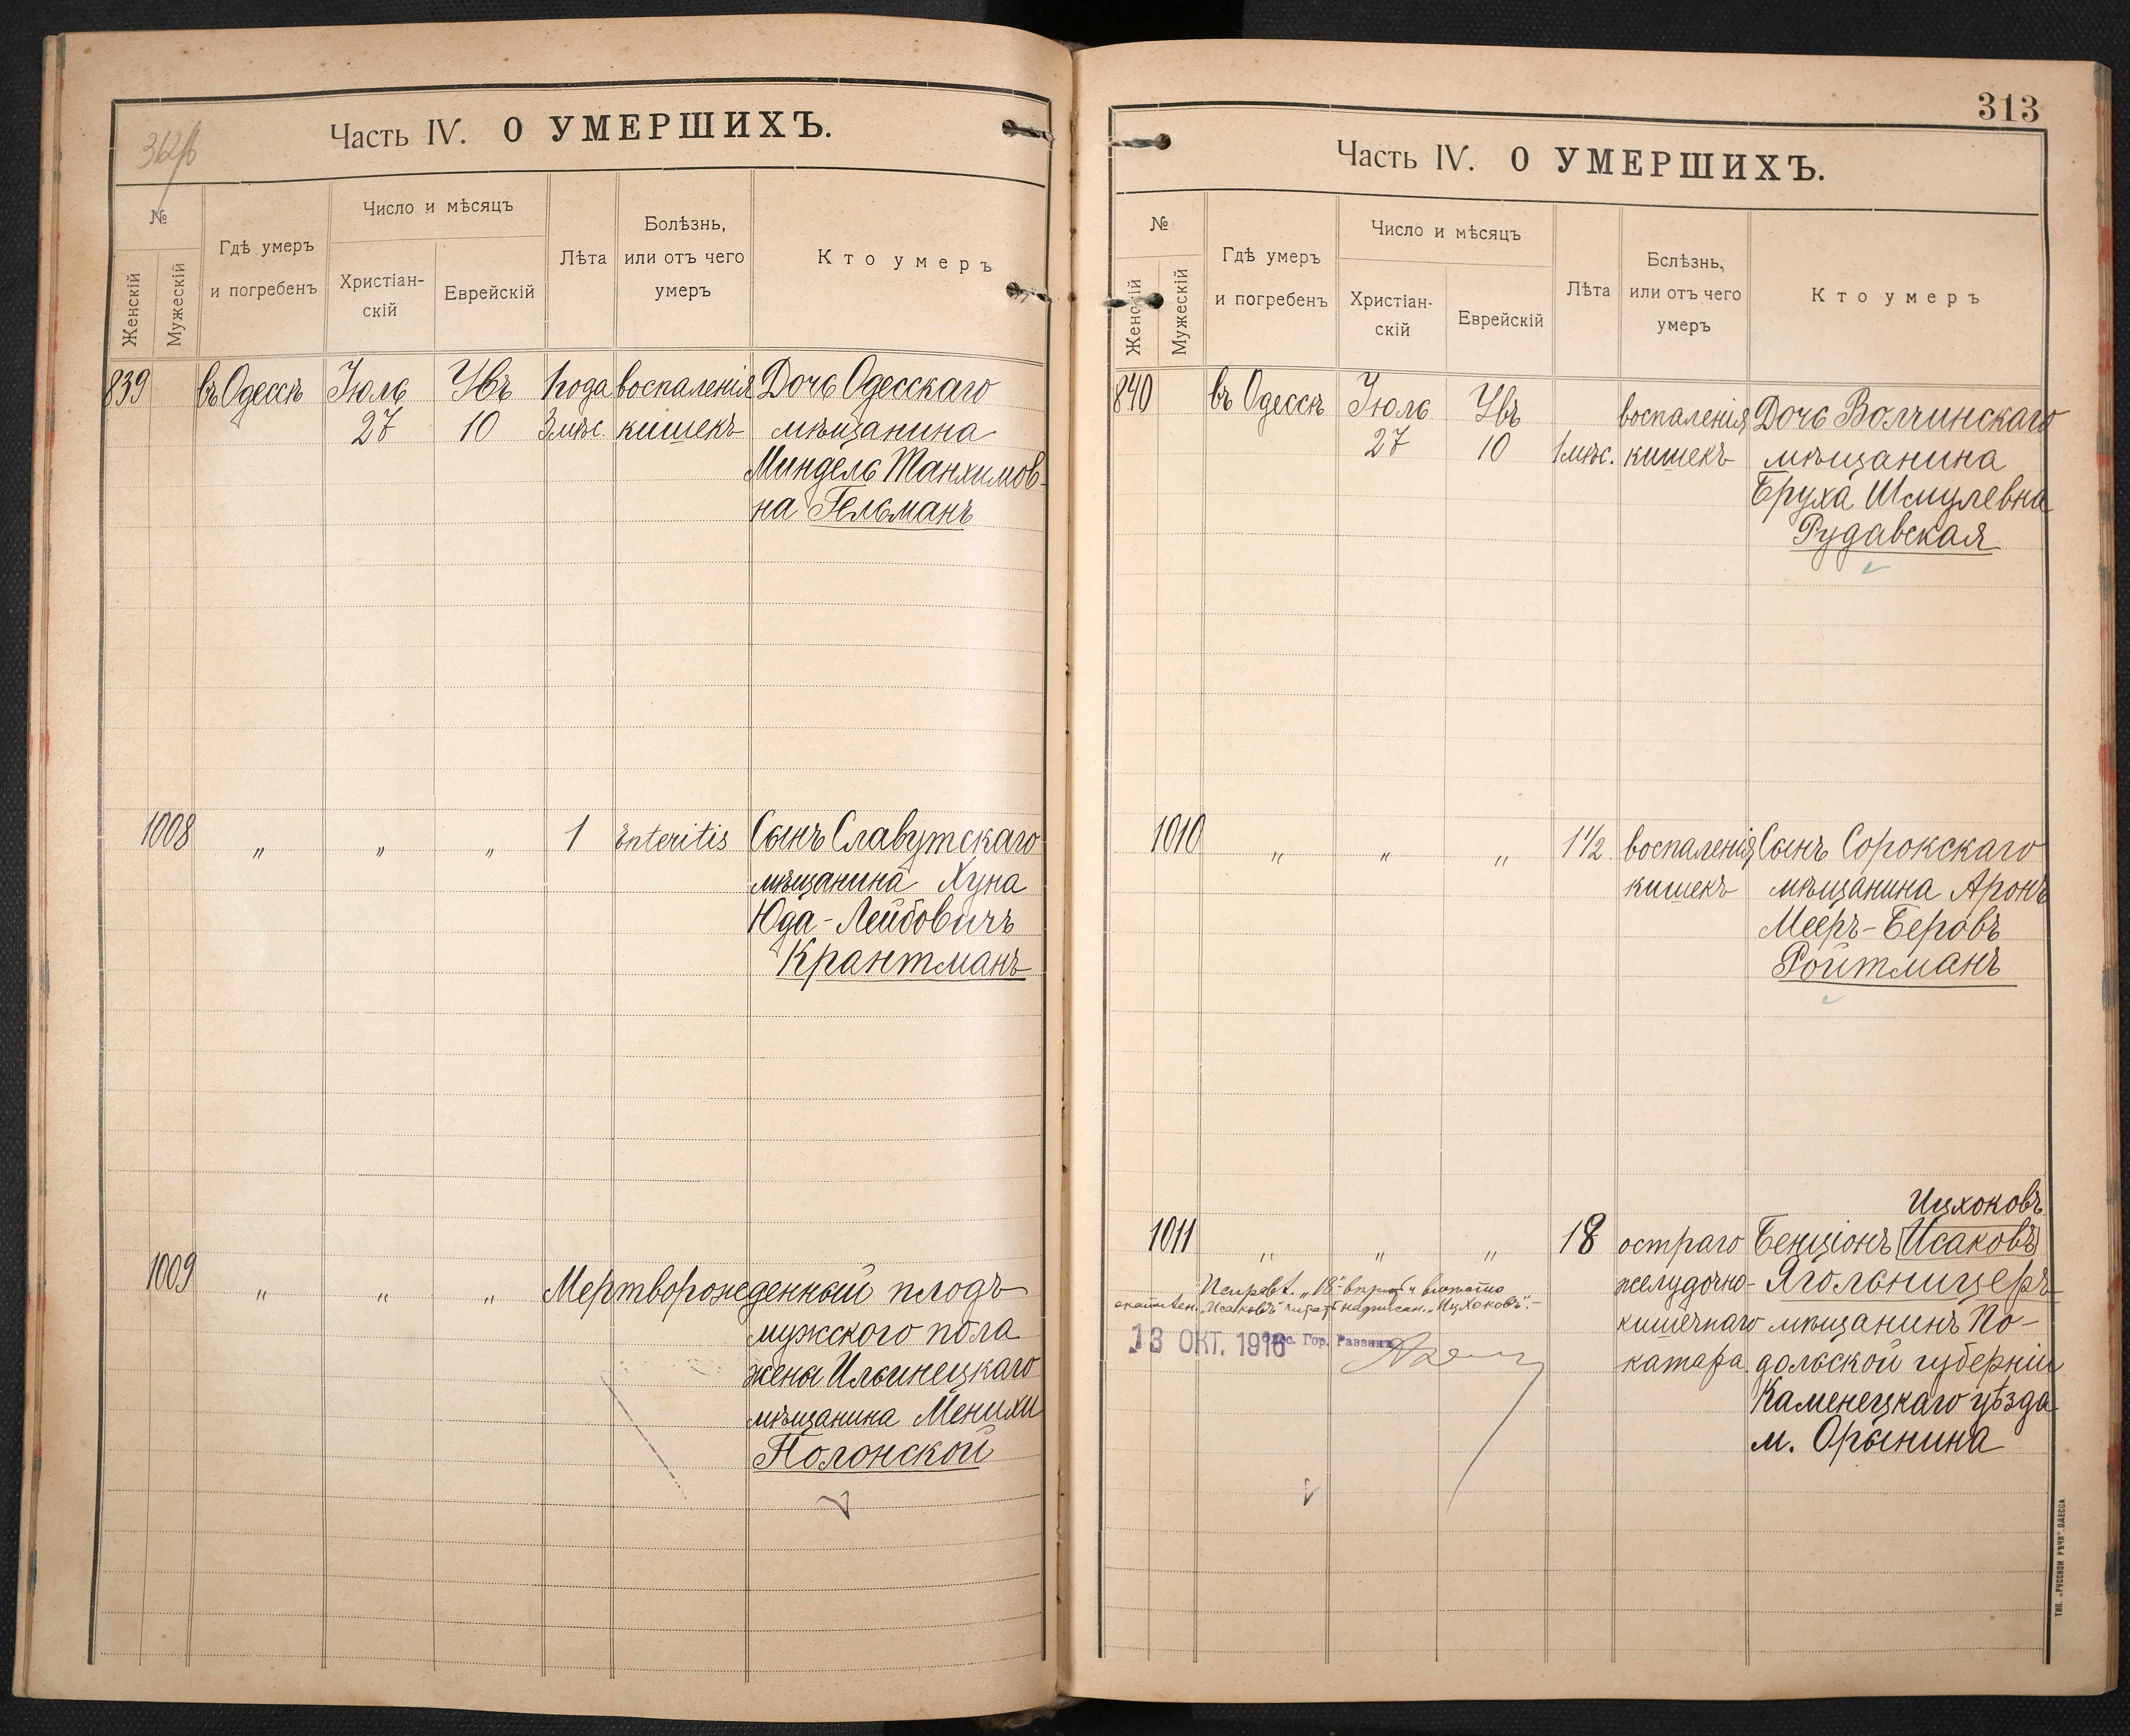 362/б
Часть IV. О УМЕРШИХЪ.
№
Женскій
Мужескій
Гдѣ умеръ
и погребенъ
Число и мѣсяцъ
Христіан-
скій
Еврейскій
Лѣта
Болѣзнь,
или отъ чего
умеръ
Кто умеръ
839 въ Одессѣ Іюль Увъ 1 года воспаленія Дочь Одесскаго
27 10 3 мѣс. кишекъ мѣщанина
Миндель Танхимов-
на Гельманъ
1008 " " " 1 Enteritis Сынъ Славутскаго
мѣщанина Хуна
Юда-Лейбовичъ
Крантманъ
1009 " " " Мертворожденный плодъ
мужского пола
жены Ильинецкаго
мѣщанина Менихи
Полонской
313
Часть IV. О УМЕРШИХЪ.
№
Женскій
Мужескій
Гдѣ умеръ
и погребенъ
Число и мѣсяцъ
Христіан-
скій
Еврейскій
Лѣта
Бслѣзнь,
или отъ чего
умеръ
Кто умеръ
840 въ Одессѣ Іюль Увъ воспаленія Дочь Волчинскаго
27 10 1 мѣс. кишекъ мѣщанина
Бруха Шмулевна
Рудавская
1010 " " " 1 1/2 воспаленія Сынъ Сорокскаго
кишекъ мѣщанина Аронъ
Мееръ-Беровъ
Ройтманъ
Ицхоковъ
1011 " " " 18 остраго Бенціонъ Исаковъ
желудочно- Ягольницеръ
кишечнаго мѣщанинъ По-
катара. дольской губерніи
Каменецкаго уѣзда
м. Орынина
Исправл. „18“ вмѣсто
„Исаковъ“ читать надписан. „Ицхоковъ“.-
13 ОКТ. 1916 Одес. Гор. Раввинъ
ТИП. „РУССКОЙ РѢЧИ“ ОДЕССА